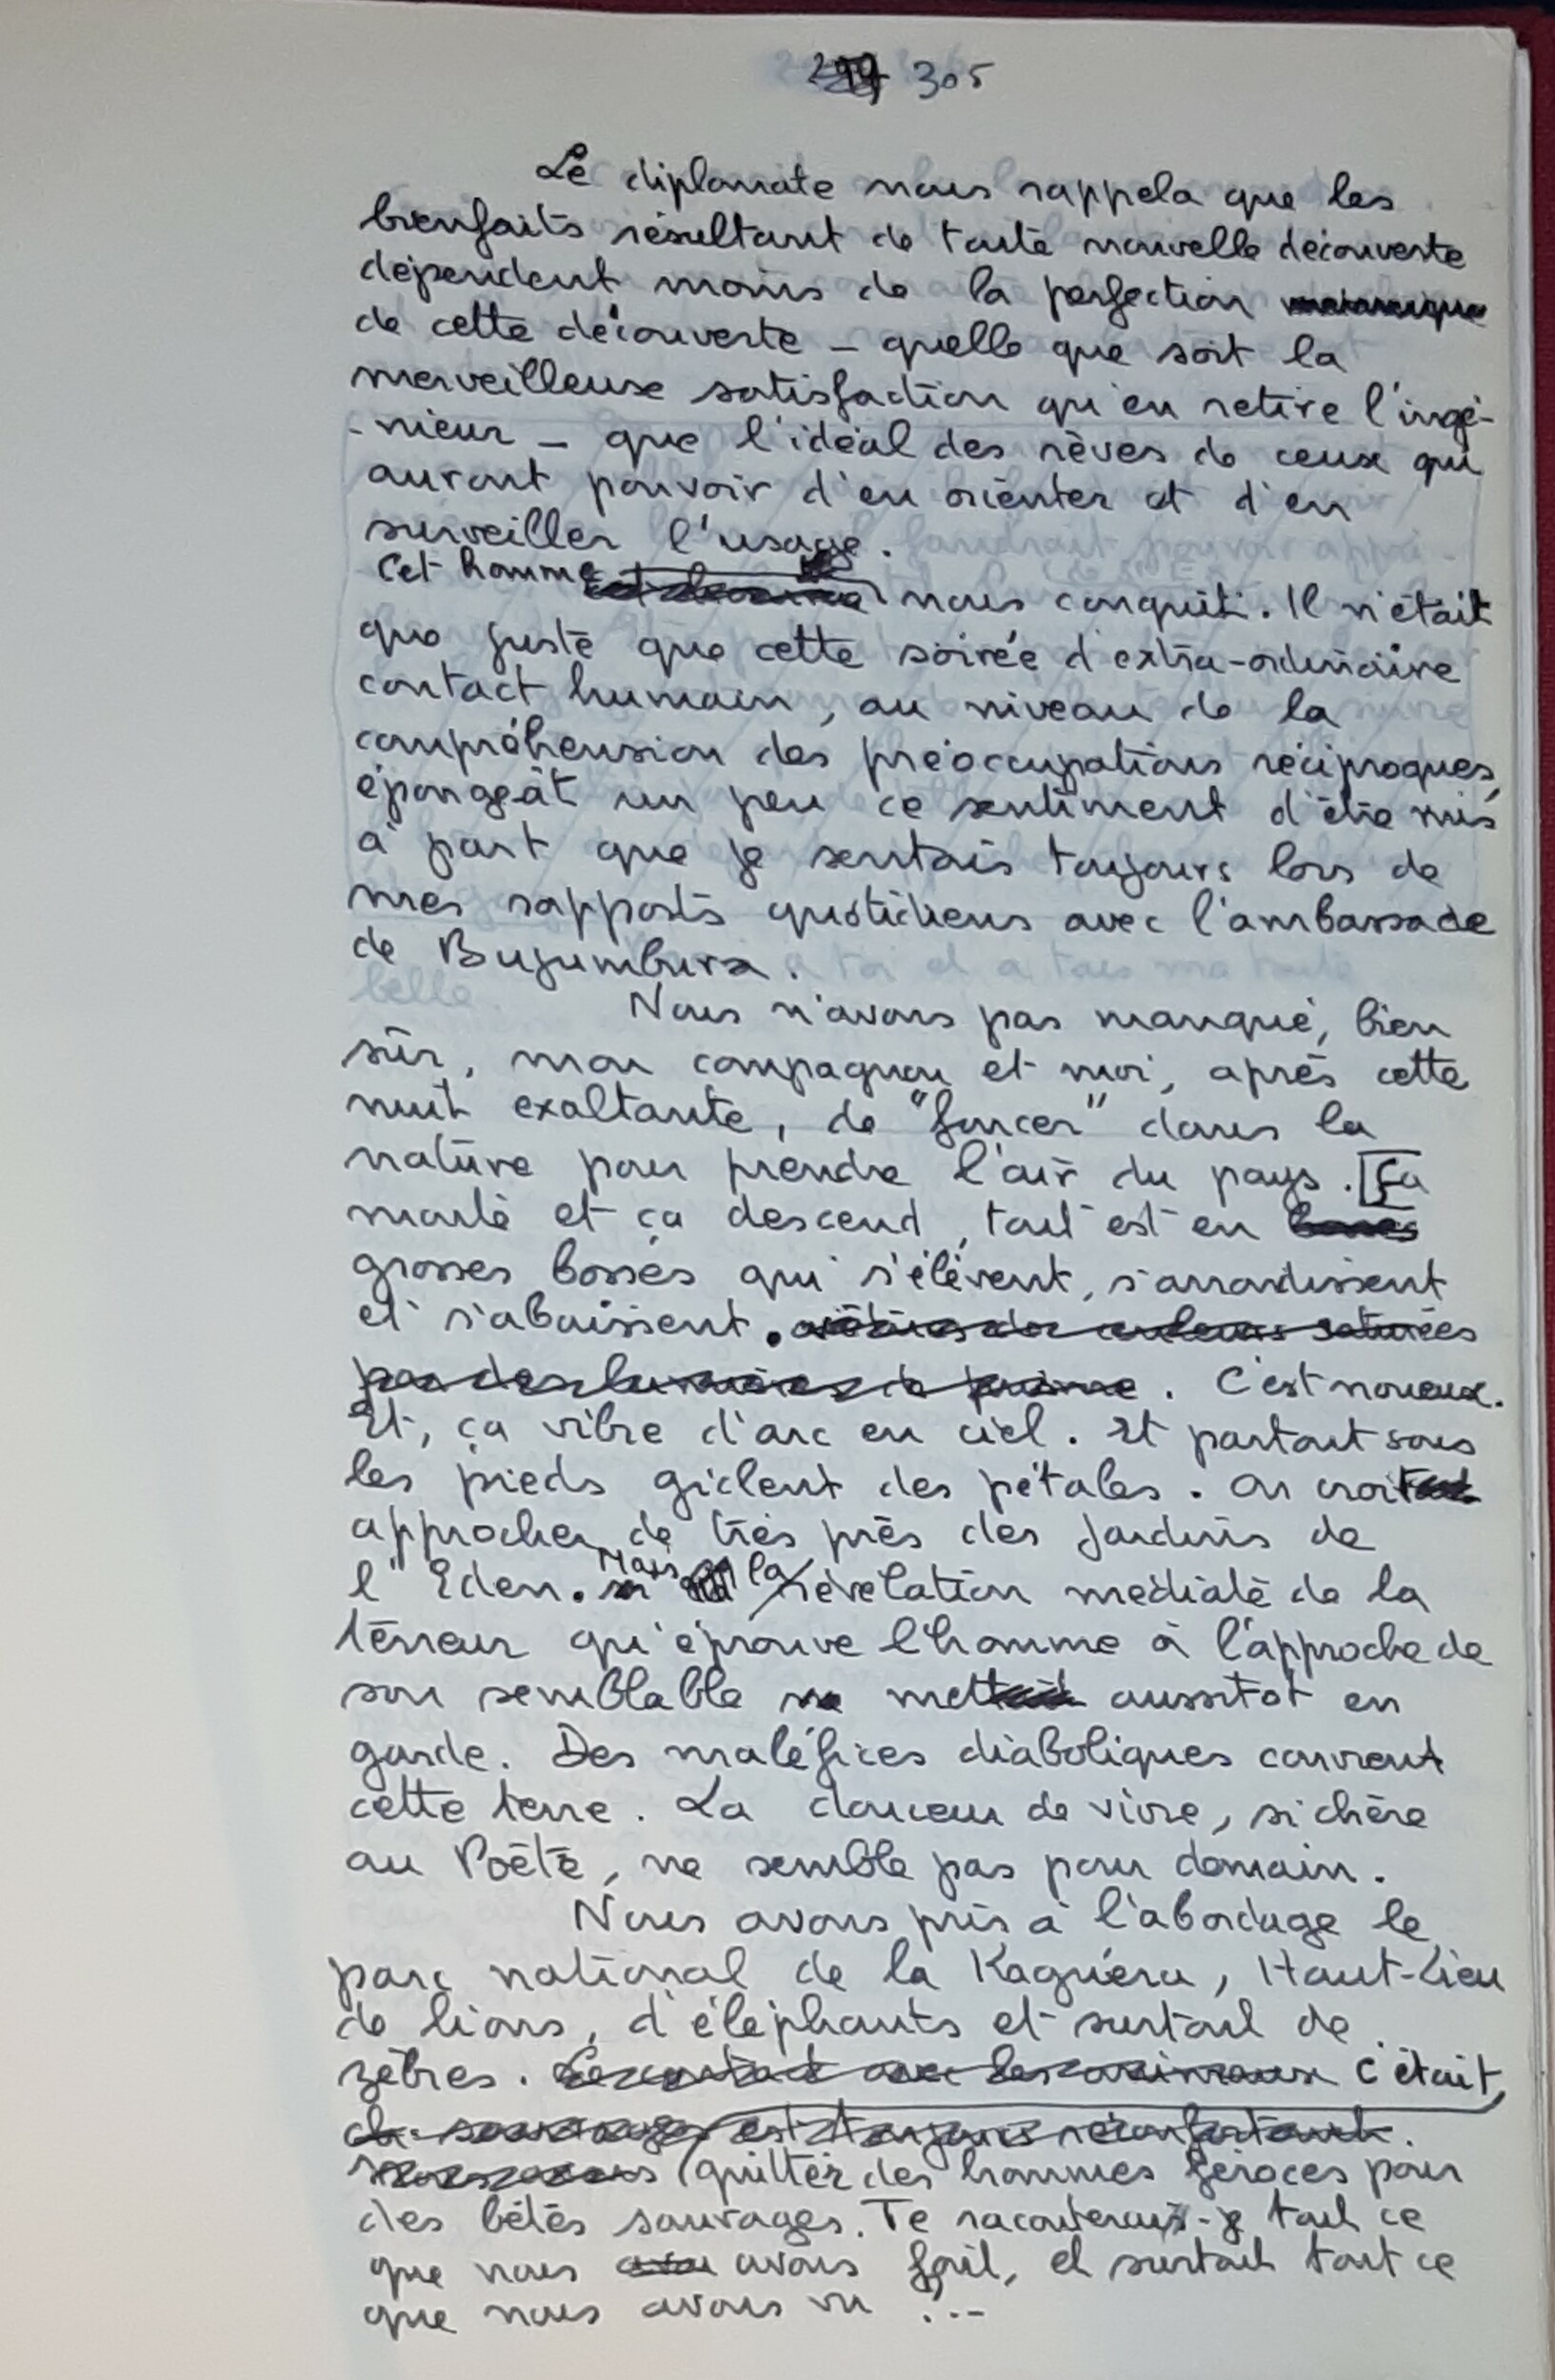 305
Le diplomate nous rappela que les
bienfaits résultant de toute nouvelle découverte
dépendent moins de la perfection
de cette découverte - quelle que soit la
merveilleuse satisfaction qu'en retire l'ingé-
-nieur - que l'idéal des rêves de ceux qui
auront pouvoir d'en orienter et d'en
surveiller l'usage.
Cet homme nous conquit. Il n'était
que juste que cette soirée d'extra-ordinaire
contact humain, au niveau de la
compréhension des préoccupations réciproques,
épongeât un peu ce sentiment d'être mis
à part que je sentais toujours lors de
mes rapports quotidiens avec l'ambassade
de Bujumbura.
Nous n'avons pas manqué, bien
sûr, mon compagnon et moi, après cette
nuit exaltante, de "foncer" dans la
nature pour prendre l'air du pays. [Ça
monte et ça descend, tout est en
grosses bosses qui s'élèvent, s'arrondissent
et s'abaissent.
C'est noueux.
Et, ça vibre d'arc en ciel. Et partout sous
les pieds giclent des pétales. On croit
approcher de très près des jardins de
l'Eden. Mais la révélation médiate de la
terreur qu'éprouve l'homme à l'approche de
son semblable met aussitot en
garde. Des maléfices diaboliques couvrent
cette terre. La douceur de vivre, si chère
au Poète, ne semble pas pour demain.
Nous avons pris à l'abordage le
parc national de la Kaguéra, Haut-Lieu
de lions, d'éléphants et surtout de
zèbres. C'était,
quitter des hommes féroces pour
des bêtes sauvages. Te raconterai-je tout ce
que nous avons fait, et surtout tout ce
que nous avons vu ?...